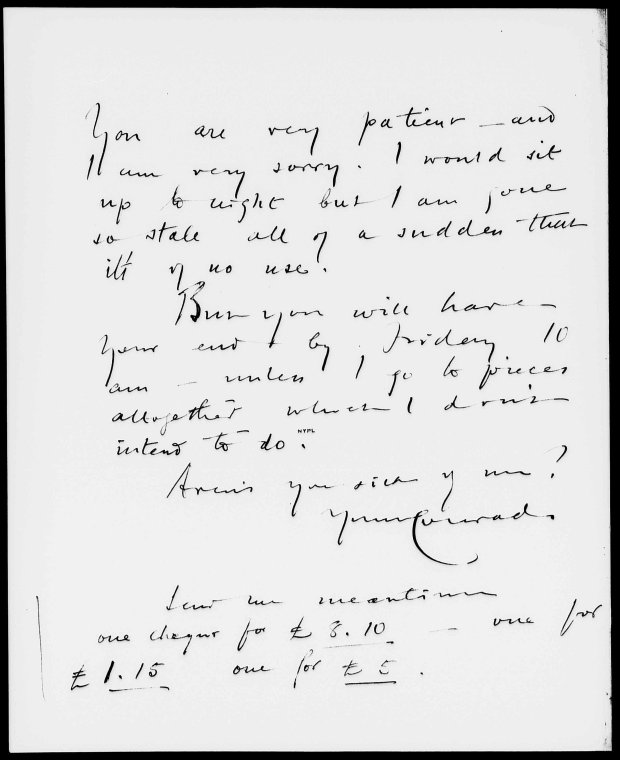 You are very patient – and
I am very sorry. I would sit
up to night but I am gone
so stale all of a sudden that
it's of no use.
But you will have
your end by Friday 10
am – unless I go to pieces
altogether which I don't
intend to do.
NYPL
Aren't you sick of me?
Yours Conrad.
Send me meantime
one cheque for £ 3.10 — one for
£ 1.15 one for £ 5.